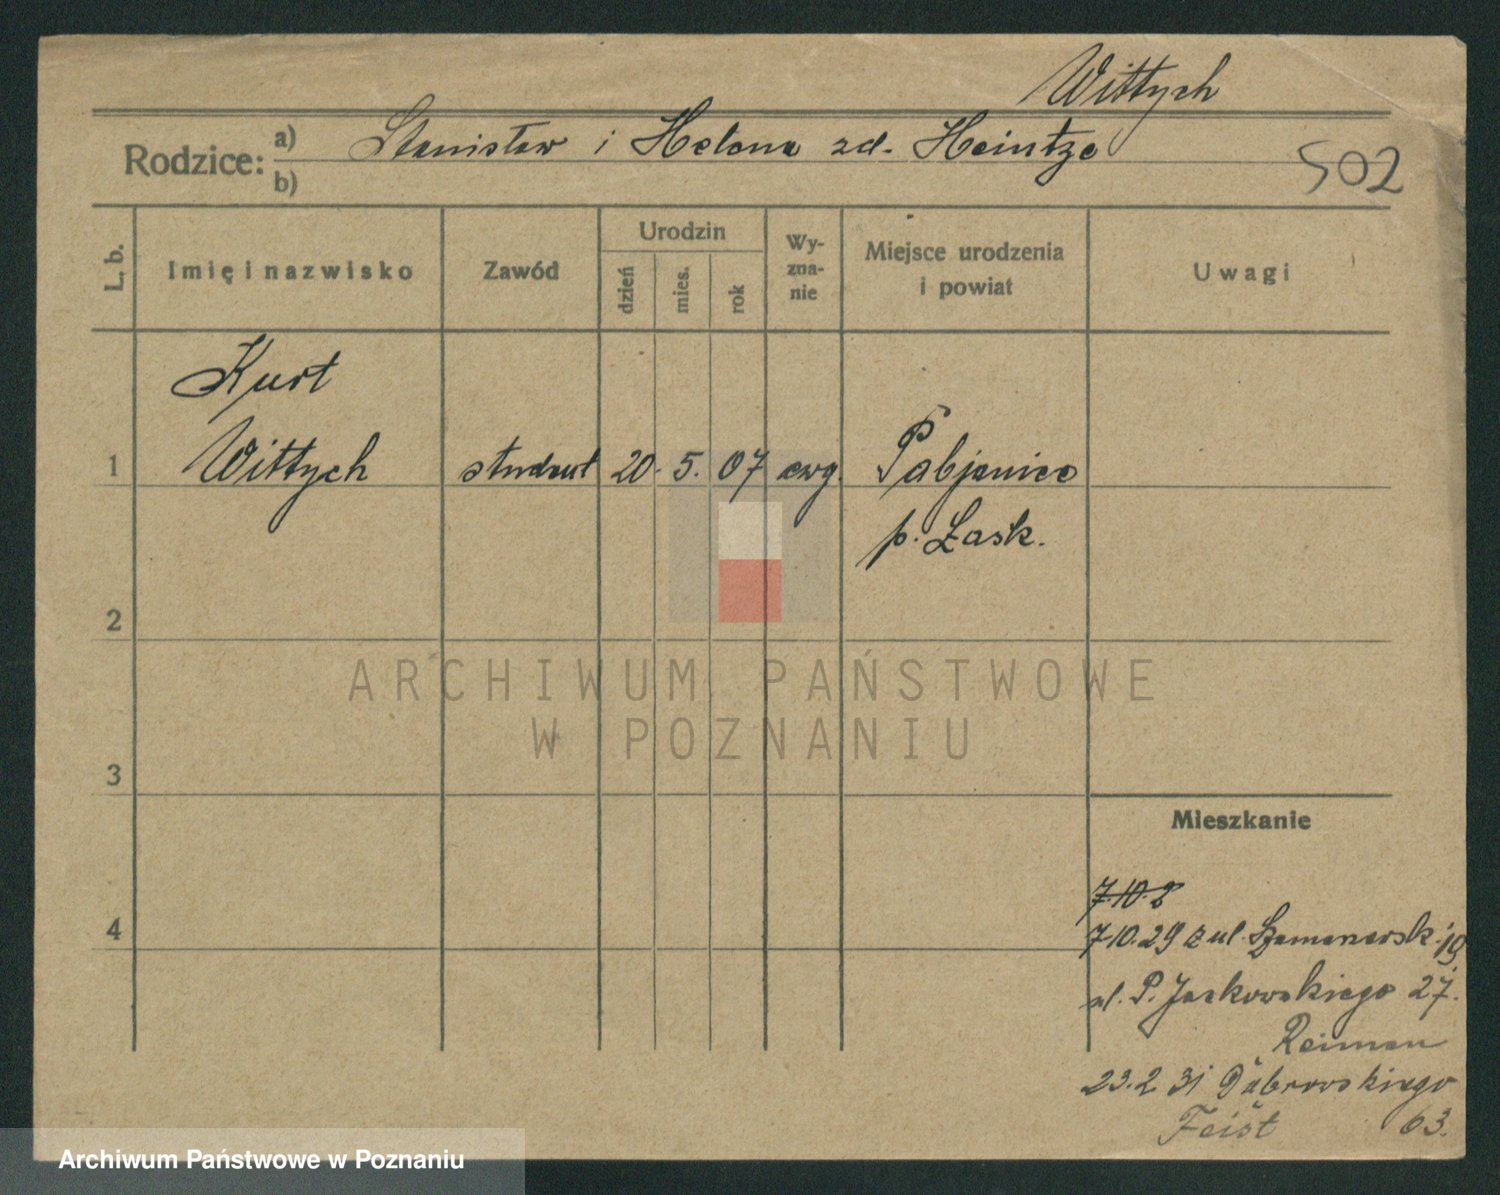 Wittych
Rodzice: a) Stanisław i Helena zd. Heintze
b)
502
L. b.
Imię i nazwisko
Zawód
Urodzin
dzień
mies.
rok
Wy-
zna-
nie
Miejsce urodzenia
i powiat
Uwagi
Kurt
1 Wittych student 20. 5. 07 ewg. Pabjanice
p. Łask.
2
3
4
ARCHIWUM PAŃSTWOWE
W POZNANIU
Mieszkanie
7.10.2
7.10.29 z ul. 19
ul. P. Jackowskiego 27.
Reiman
23.2 31 Dąbrowskiego
Feist 63.
Archiwum Państwowe w Poznaniu